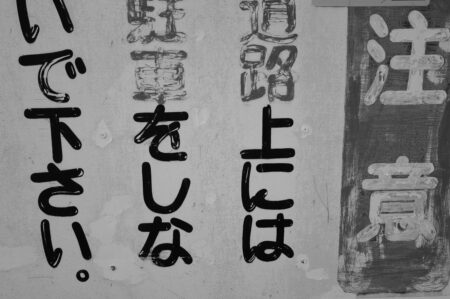 注意
道路上には
駐車をしな
いで下さい。